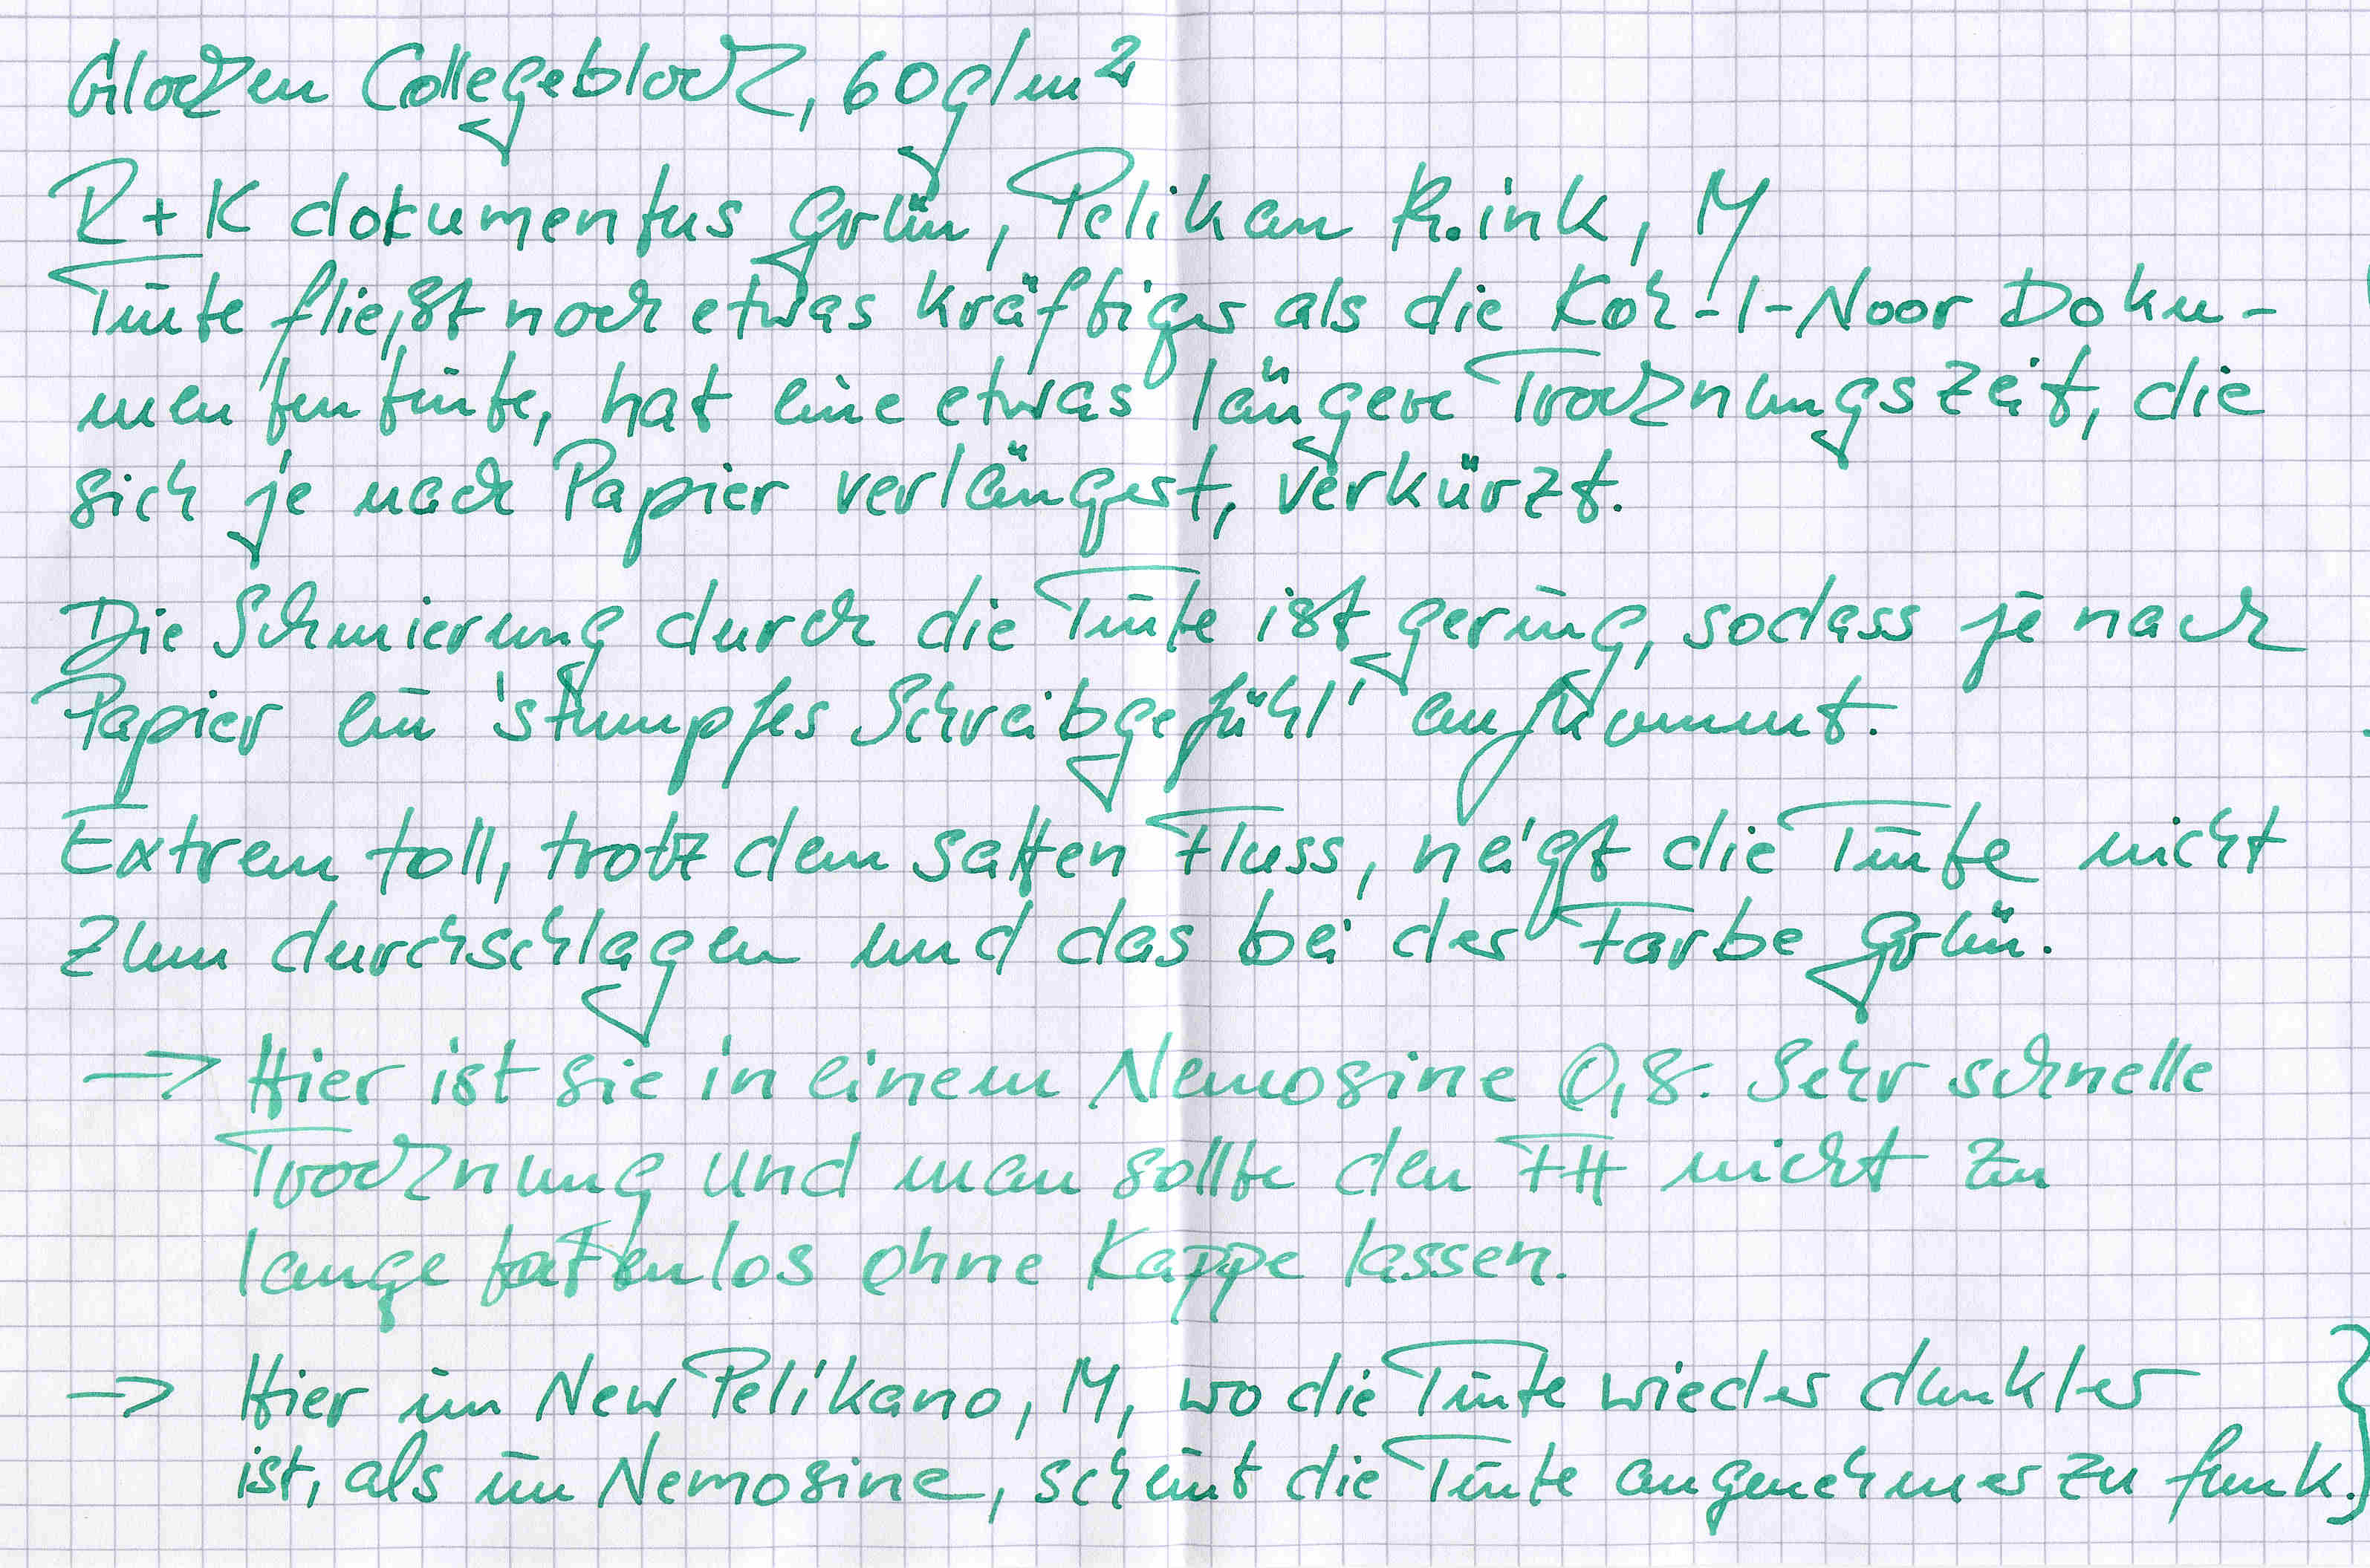 Glocken Collegeblock, 60g/m²
R+K dokumentus Grün, Pelikan P.ink, M
Tinte fließt noch etwas kräftiger als die Koh-I-Noor Doku-
mententinte, hat eine etwas längere Trocknungszeit, die
sich je nach Papier verlängert, verkürzt.
Die Schmierung durch die Tinte ist gering, sodass je nach
Papier ein 'stumpfes Schreibgefühl' aufkommt.
Extrem toll, trotz dem satten Fluss, neigt die Tinte nicht
zum durchschlagen und das bei der Farbe Grün.
→ Hier ist sie in einem Nemosine 0,8. Sehr schnelle
Trocknung und man sollte den FH nicht zu
lange tatenlos ohne Kappe lassen.
→ Hier im New Pelikano, M, wo die Tinte wieder dunkler
ist, als im Nemosine, scheint die Tinte angenehmer zu funk.}